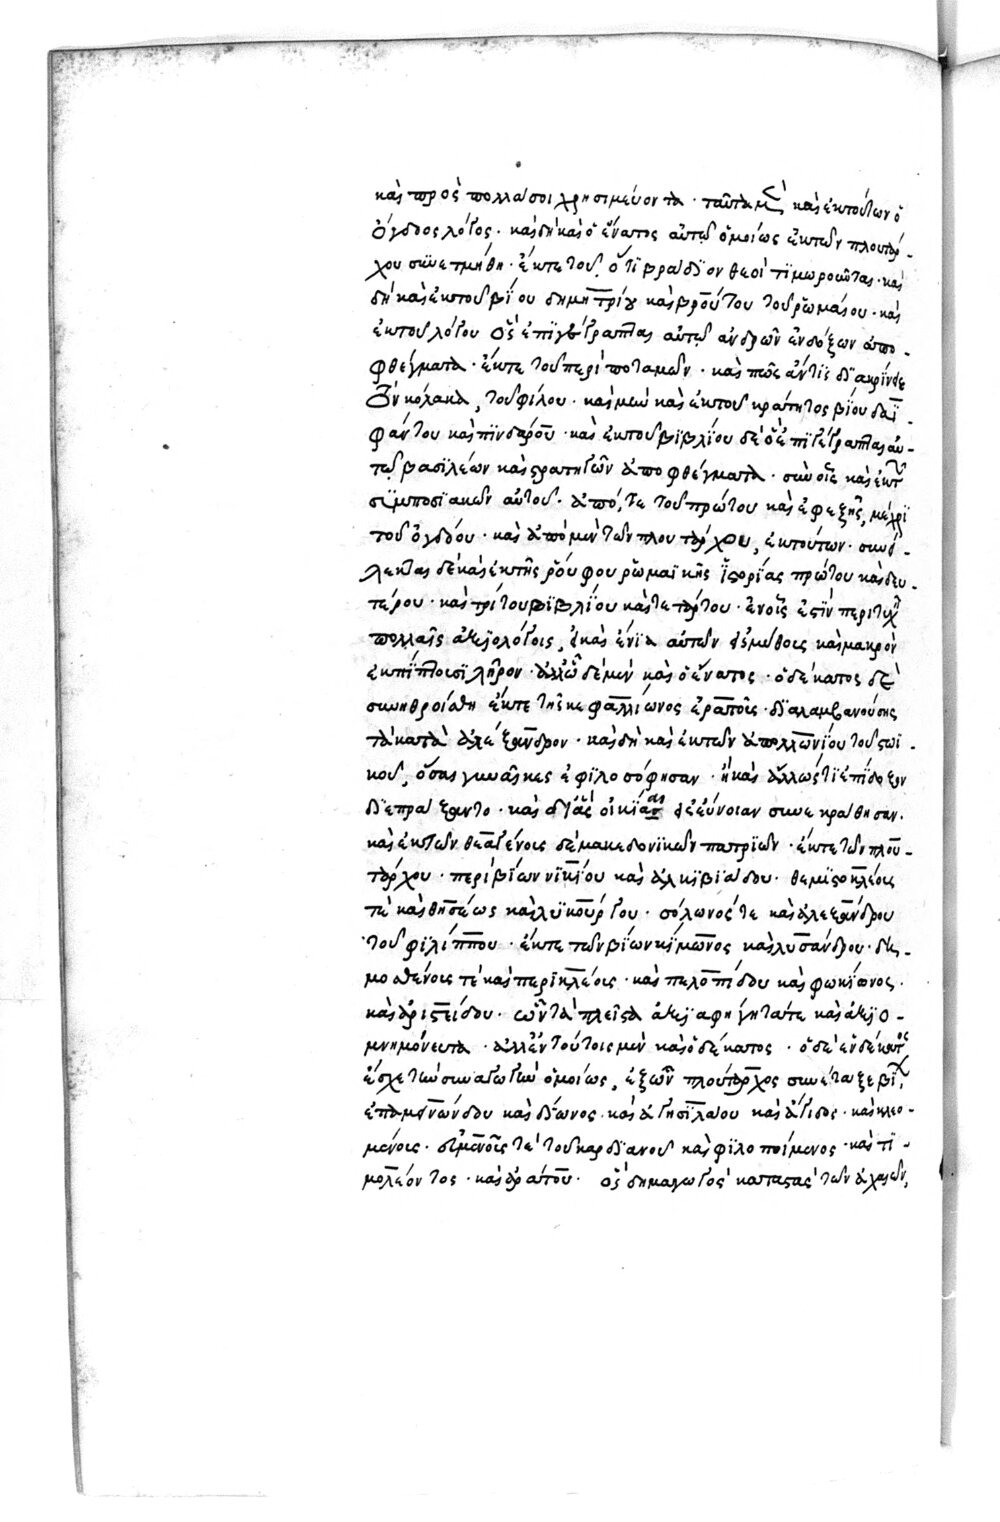 καὶ πρὸς πολλά σοι χρησιμεύοντα · ταῦτα μὲν καὶ ἐκ τούτων ὁ
ὄγδοος λόγος · καὶ δὴ καὶ ὁ ἔνατος αὐτῷ ὁμοίως ἐκ τῶν πλουτάρ-
χου συνετμήθη · ἔκ τε τοῦ, ὅτι βράδϊον θεοὶ τϊμωροῦνται · καὶ
δὴ καὶ ἐκ τοῦ βΐου δημητρίου καὶ βρούτου τοῦ ῥωμαίου · καὶ
ἐκ τοῦ λόγου ὃς ἐπϊγέγραπται αὐτῷ ἀνδρῶν ἐνδόξων ἀπο-
φθέγματα · ἔκ τε τοῦ περὶ ποταμῶν · καὶ πῶς ἄν τις δϊακρίνειε
τὸν κόλακα, τοῦ φίλου · καὶ μὴν καὶ ἐκ τοῦ κράτητος βίου δαϊ-
φάντου καὶ πϊνδάρου · καὶ ἐκ τοῦ βιβλίου δὲ ὃ ἐπϊγέγραπται αὐ-
τῷ βασιλέων καὶ στρατηγῶν ἀποφθέγματα · σὺν οἷς καὶ ἐκ τῶν
σϋμποσϊακῶν αὐτοῦ · ἀπό, τε τοῦ πρώτου καὶ ἐφεξῆς, μέχρϊ
τοῦ ὀγδόου · καὶ ἀπὸ μὲν τῶν πλουτάρχου, ἐκ τούτων · συνεί-
λεκται δὲ καὶ ἐκ τῆς ῥούφου ῥωμαϊκῆς ἱστορίας πρώτου καὶ δευ-
τέρου · καὶ τρίτου βϊβλΐου καὶ τετάρτου · ἐν οἷς ἐστϊν περιτυχεῖν
πολλαῖς ἀξιολόγοις, εἰ καὶ ἔνϊα αὐτῶν εἰς μύθους καὶ μακρὸν
ἐκπΐπτουσι λῆρον · ἀλλ' ὧδε μὲν καὶ ὁ ἔνατος · ὁ δέκατος δὲ
συνηθροίσθη ἔκ τε τῆς κεφαλλίωνος ἐρατοῦς · δϊαλαμβανούσης
τὰ κατὰ ἀλέξανδρον · καὶ δὴ καὶ ἐκ τῶν ἀπολλωνΐου τοῦ στωϊ-
κοῦ, ὅσαι γυναῖκες ἐφϊλοσόφησαν · ἢ καὶ ἄλλως τϊ ἐπίδοξον
δϊεπράξαντο · καὶ δϊ' ἃς οἰκΐαι εἰς εὔνοιαν συνεκράθησαν ·
καὶ ἐκ τῶν θεαγένους δὲ μακεδονϊκῶν πατρίων · ἔκ τε τῶν πλου-
τάρχου · περὶ βίων νϊκΐου καὶ ἀλκϊβϊάδου · θεμϊστοκλέους
τὲ καὶ θησέως καὶ λϋκούργου · σόλωνός τε καὶ ἀλεξάνδρου
τοῦ φϊλίππου · ἔκ τε τῶν βίων κΐμωνος καὶ λυσάνδρου · δη-
μοσθένους τὲ καὶ περϊκλέους · καὶ πελοπίδου καὶ φωκΐωνος ·
καὶ ἀριστείδου · ὧν τὰ πλεῖστα ἀξϊαφήγητά τε καὶ ἀξϊο-
μνημόνευτα · ἀλλ' ἐν τούτοις μὲν καὶ ὁ δέκατος · ὁ δὲ ἑνδέκατος
ἔσχε τὴν συναγωγὴν ὁμοίως, ἐξ ὧν πλούταρχος συνέταξε βΐων,
ἐπαμϊνώνδου καὶ δΐωνος · καὶ ἀγησϊλάου καὶ ἄγιδος · καὶ κλεο-
μένους · εὐμένους τὲ τοῦ καρδϊανοῦ καὶ φϊλοποίμενος · καὶ τϊ-
μολέοντος · καὶ ἀράτου · ὃς δημαγωγὸς καταστὰς τῶν ἀχαιῶν,